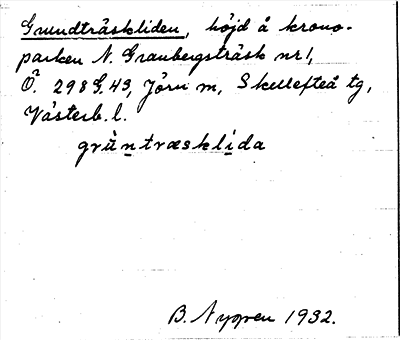 Grundträskliden, höjd å krono-
parken N. Granbergsträsk nr 1,
Ö. 298 G, 43, Jörn sn, Skellefteå tg,
Västerb. l.
grùntræsklida
B. Nygren 1932.